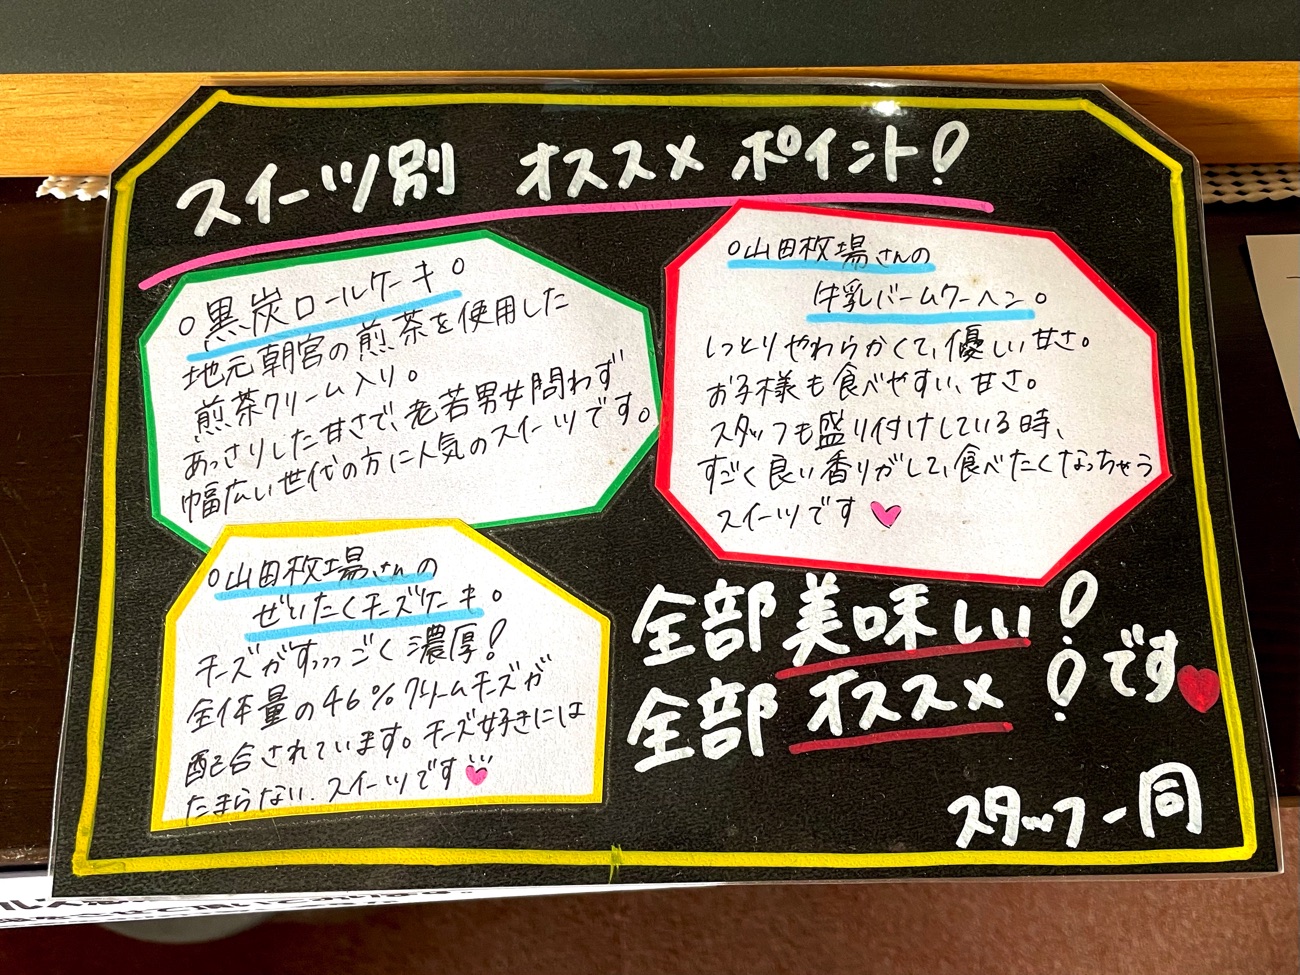 スイーツ別 オススメ ポイント!
○黒炭ロールケーキ○
地元朝宮の煎茶を使用した
煎茶クリーム入り。
あっさりした甘さで、老若男女問わず
幅広い世代の方に人気のスイーツです。
○山田牧場さんの
牛乳バームクーヘン○
しっとりやわらかくて、優しい甘さ。
お子様も食べやすい、甘さ。
スタッフも盛り付けしている時、
すごく良い香りがして、食べたくなっちゃう
スイーツです
○山田牧場さんの
ぜいたくチーズケーキ○
チーズがすっっっごく濃厚!
全体量の46%クリームチーズが
配合されています。チーズ好きには
たまらない、スイーツです
全部美味しい!
全部オススメ!です
スタッフ一同